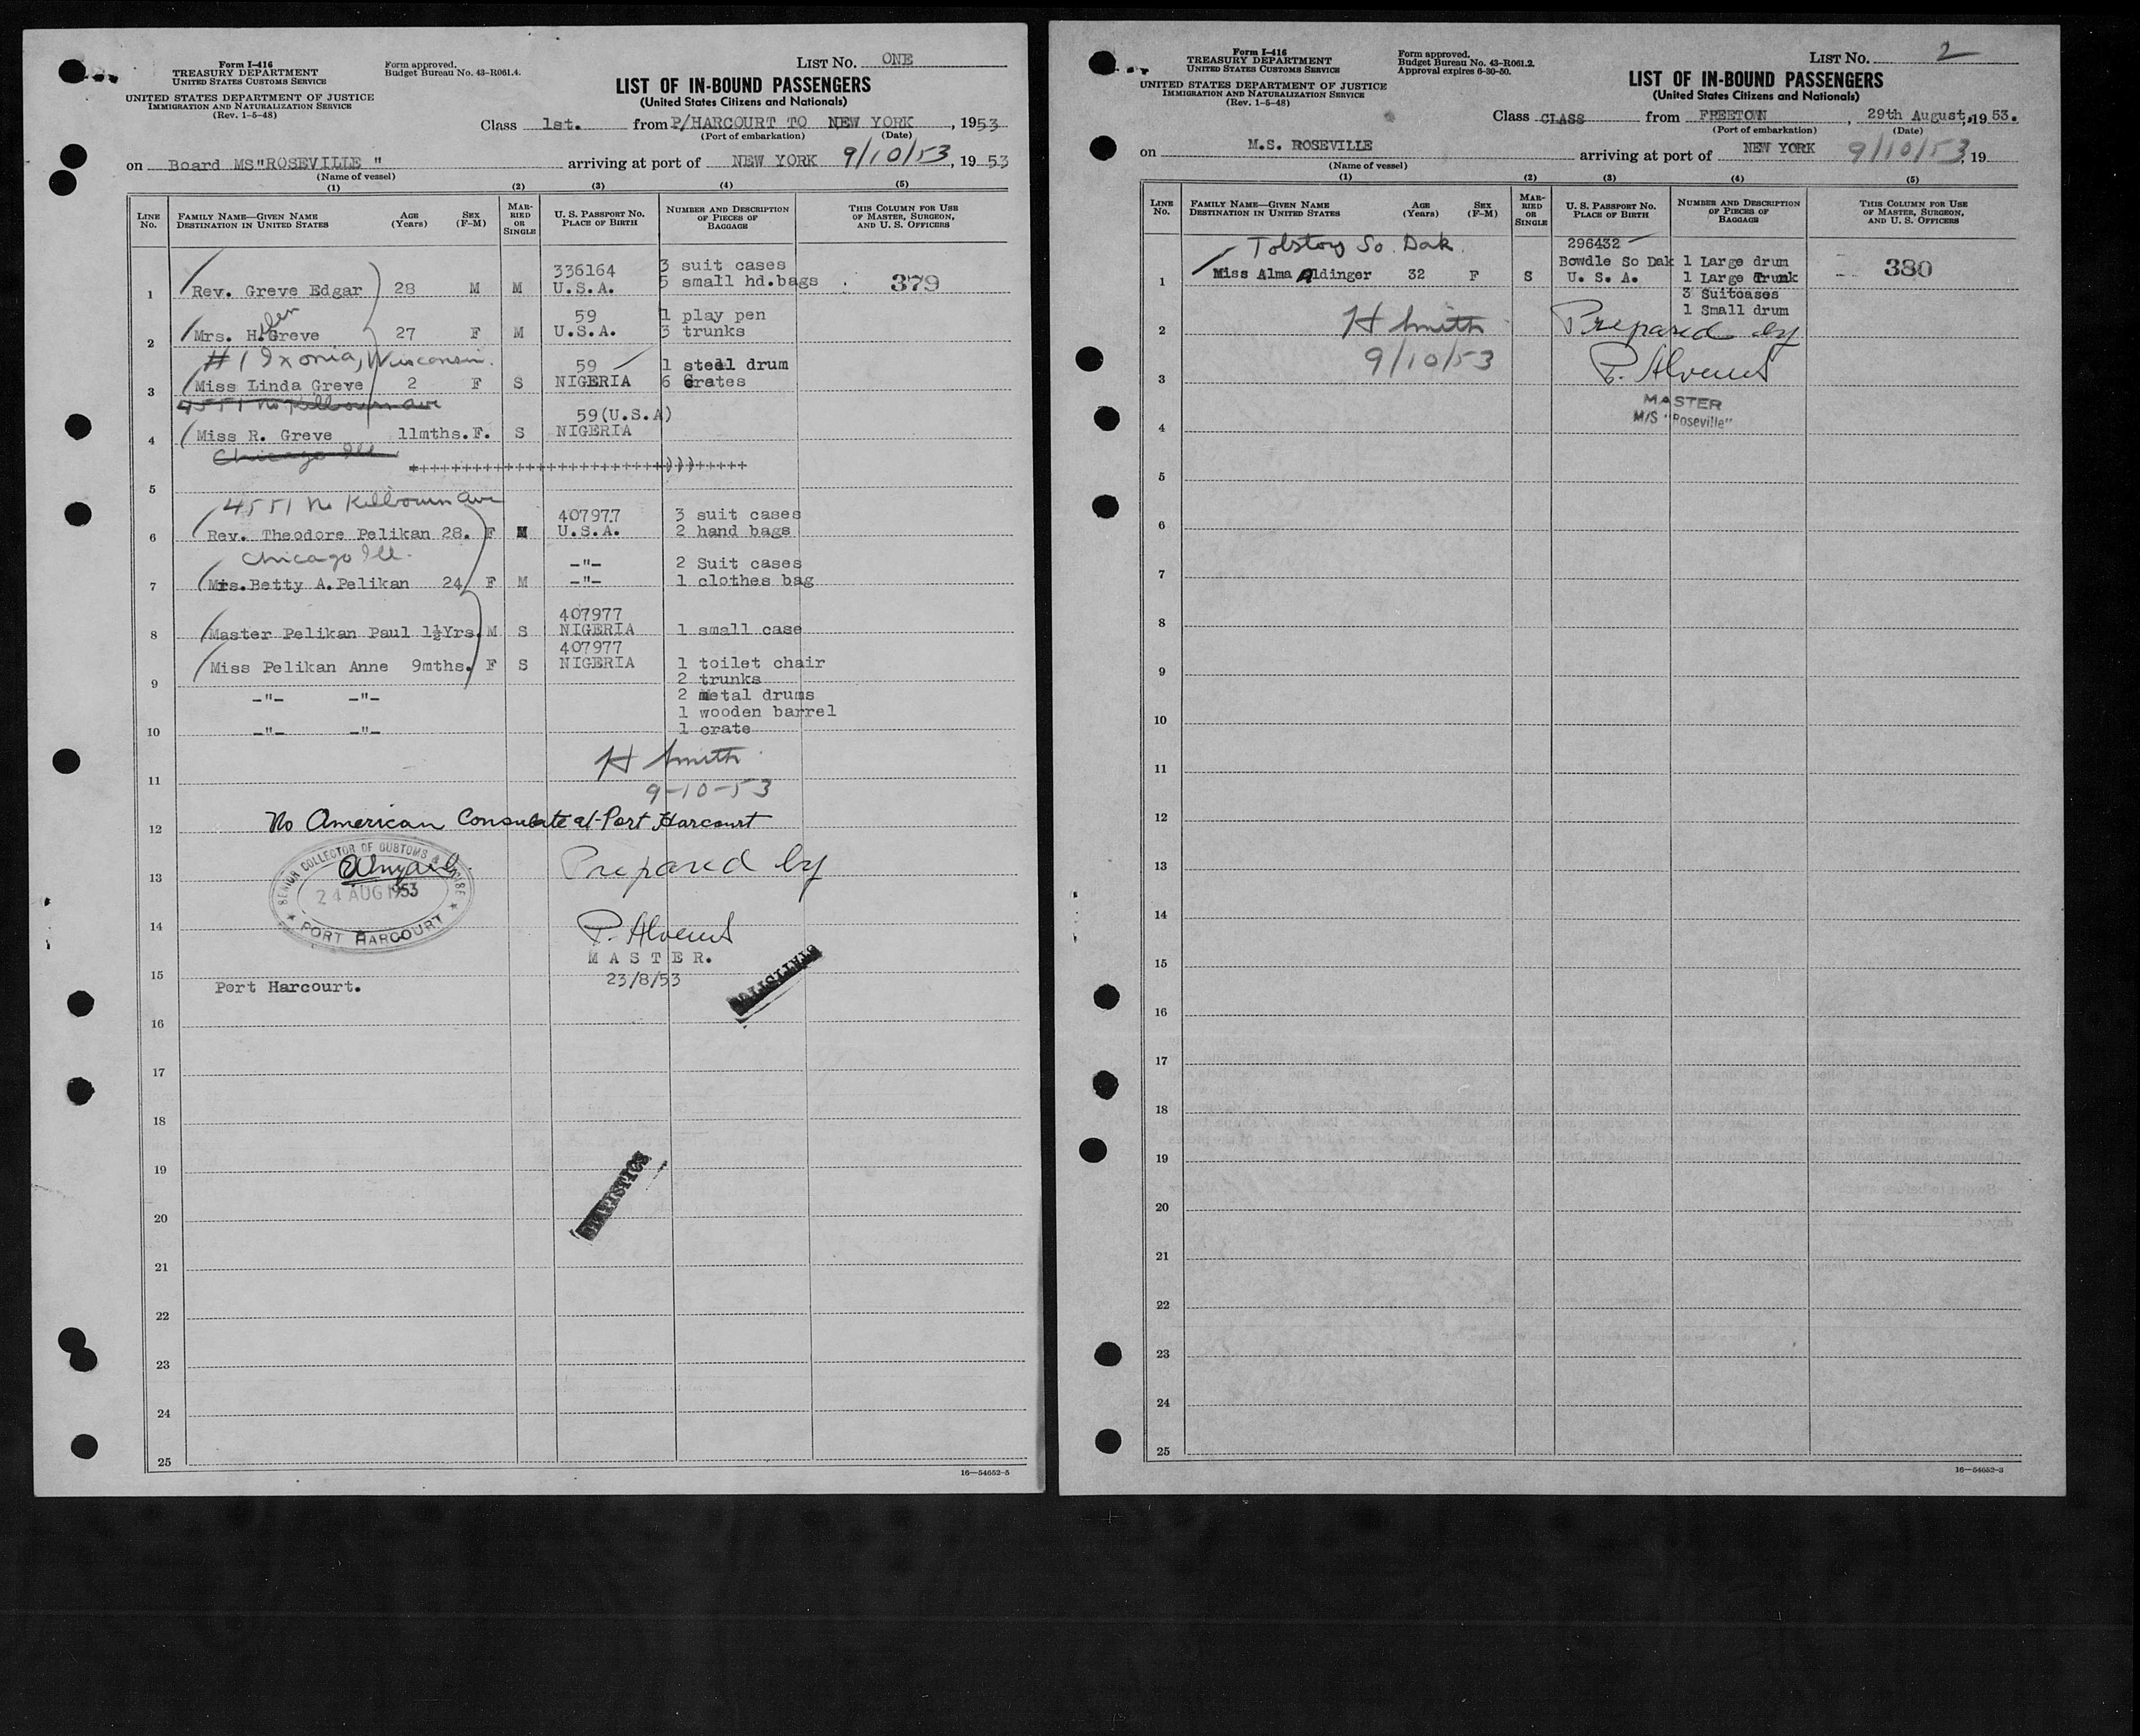 Form I-416
TREASURY DEPARTMENT
UNITED STATES CUSTOMS SERVICE
UNITED STATES DEPARTMENT OF JUSTICE
IMMIGRATION AND NATURALIZATION SERVICE
(Rev. 1-5-48)
Form approved.
Budget Bureau No. 43-R061.4.
LIST No. ONE
LIST OF IN-BOUND PASSENGERS
(United States Citizens and Nationals)
Class 1st. from P/HARCOURT TO NEW YORK, 1953
(Port of embarkation) (Date)
on Board MS"ROSEVILLE " arriving at port of NEW YORK 9/10/53, 1953
(Name of vessel)
(1) (2) (3) (4) (5)
LINE No. FAMILY NAME—GIVEN NAME DESTINATION IN UNITED STATES AGE (Years) SEX (F-M) MARRIED OR SINGLE U. S. PASSPORT No. PLACE OF BIRTH NUMBER AND DESCRIPTION OF PIECES OF BAGGAGE THIS COLUMN FOR USE OF MASTER, SURGEON, AND U. S. OFFICERS
336164 3 suit cases
1 Rev. Greve Edgar 28 M M U.S.A. 5 small hd.bags 379
59 1 play pen
2 Mrs. H. Greve 27 F M U.S.A. 3 trunks
#1 Ixonia, Wisconsin.
59 1 steel drum
3 Miss Linda Greve 2 F S NIGERIA 6 Crates
4551 No Kilbourn Ave
59(U.S.A)
4 Miss R. Greve 11mths. F. S NIGERIA
Chicago Ill
+++++++++++++++++++++)))+++++
5
4551 No Kilbourn Ave
407977 3 suit cases
6 Rev. Theodore Pelikan 28. F M U.S.A. 2 hand bags
Chicago Ill.
-"- 2 Suit cases
7 Mrs. Betty A. Pelikan 24 F M -"- 1 clothes bag
407977
8 Master Pelikan Paul 1½Yrs. M S NIGERIA 1 small case
407977
Miss Pelikan Anne 9mths. F S NIGERIA 1 toilet chair
2 trunks
9 -"- -"- 2 metal drums
1 wooden barrel
10 -"- -"- 1 crate
H Smith
11 9-10-53
12 No American Consulate at Port Harcourt
SENIOR COLLECTOR OF CUSTOMS &
24 AUG 1953
PORT HARCOURT
13 Prepared by
14
MASTER.
15 23/8/53
Port Harcourt.
STATISTICS
16
17
18
19
STATISTICS
20
21
22
23
24
25
16-54652-5
Form I-416
TREASURY DEPARTMENT
UNITED STATES CUSTOMS SERVICE
UNITED STATES DEPARTMENT OF JUSTICE
IMMIGRATION AND NATURALIZATION SERVICE
(Rev. 1-5-48)
Form approved.
Budget Bureau No. 43-R061.2.
Approval expires 6-30-50.
LIST No. 2
LIST OF IN-BOUND PASSENGERS
(United States Citizens and Nationals)
Class CLASS from FREETOWN, 29th August, 1953.
(Port of embarkation) (Date)
on M.S. ROSEVILLE arriving at port of NEW YORK 9/10/53, 19
(Name of vessel)
(1) (2) (3) (4) (5)
LINE No. FAMILY NAME—GIVEN NAME DESTINATION IN UNITED STATES AGE (Years) SEX (F-M) MARRIED OR SINGLE U. S. PASSPORT No. PLACE OF BIRTH NUMBER AND DESCRIPTION OF PIECES OF BAGGAGE THIS COLUMN FOR USE OF MASTER, SURGEON, AND U. S. OFFICERS
Tolstoy So. Dak. 296432
Bowdle So Dak 1 Large drum
1 Miss Alma Aldinger 32 F S U. S. A. 1 Large Trunk 380
3 Suitcases
1 Small drum
2 H Smith Prepared by
9/10/53
3
MASTER
M/S "Roseville"
4
5
6
7
8
9
10
11
12
13
14
15
16
17
18
19
20
21
22
23
24
25
16-54652-3